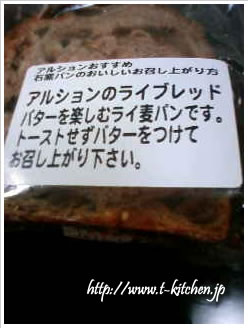 アルションおすすめ
石窯パンのおいしいお召し上がり方
アルションのライブレッド
バターを楽しむライ麦パンです。
トーストせずバターをつけて
お召し上がり下さい。
http://www.t-kitchen.jp